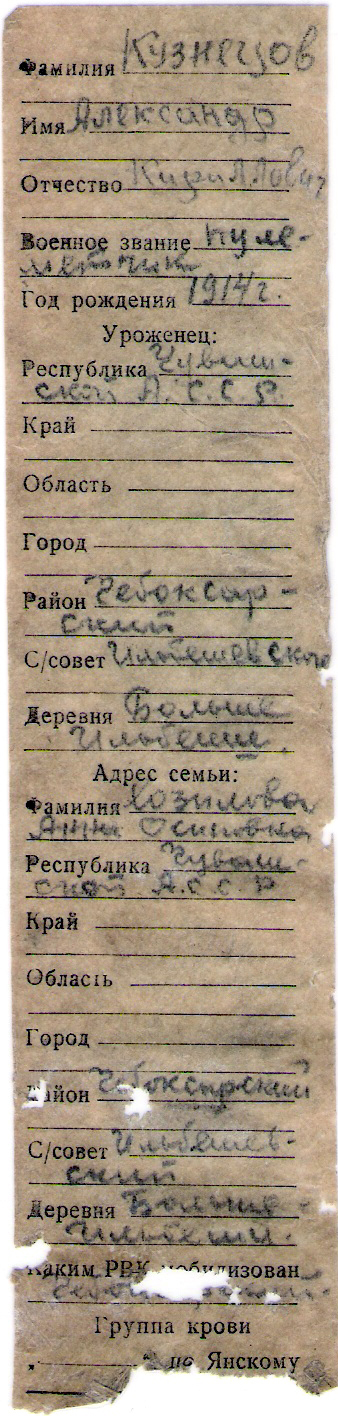 Фамилия Кузнецов
Имя Александр
Отчество Кириллович
Военное звание пуле-
метчик
Год рождения 1914 г.
Уроженец:
Республика Чуваш-
ской А.С.С.Р.
Край
Область
Город
Район Чебоксар-
ский
С/совет
Деревня Больше
Адрес семьи:
Фамилия
Анна Осиповна
Республика Чуваш-
ской А.С.С.Р
Край
Область
Город
Район Чебоксарский
С/совет Ильбешев-
ский
Деревня Больше-
Каким РВК мобилизован
Группа крови
по Янскому